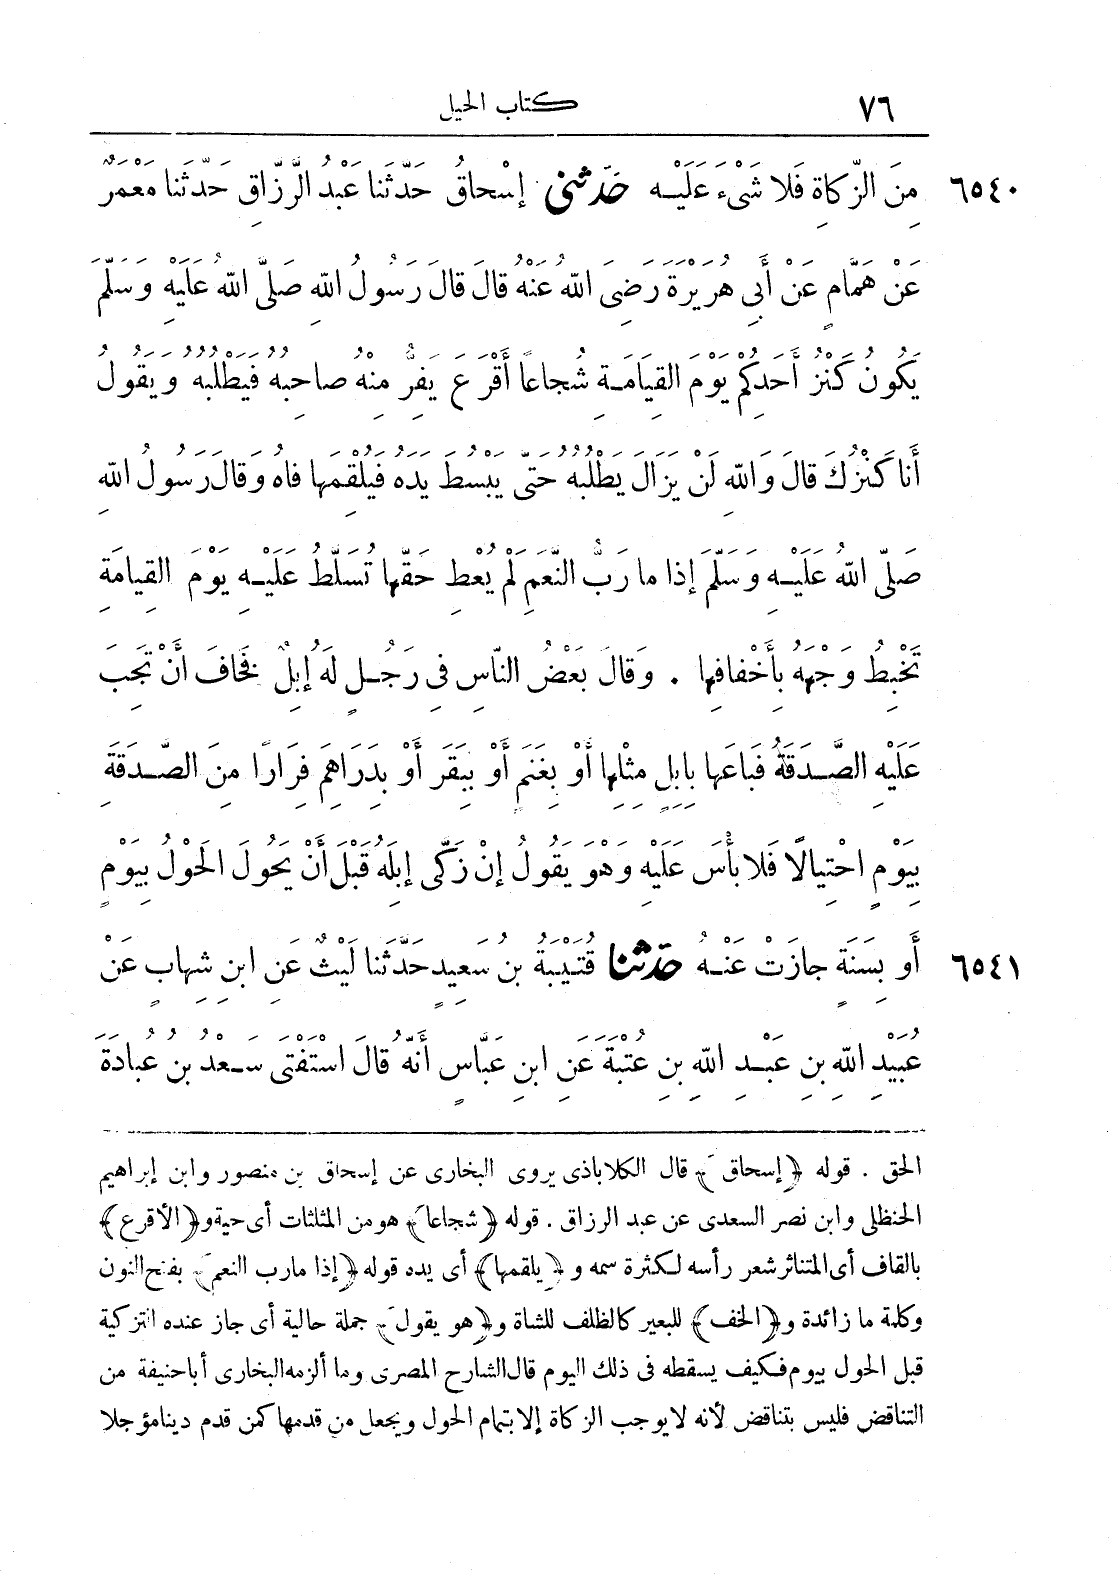 ٧٦ كتاب الحيل
٦٥٤٠ مِنَ الزَّكاةِ فَلا شَىْءَ عَلَيْهِ حَدَّثَنى إِسْحاقُ حَدَّثَنا عَبْدُ الرَّزَّاقِ حَدَّثَنا مَعْمَرٌ
عَنْ هَمَّامٍ عَنْ أَبِى هُرَيْرَةَ رَضِىَ اللهُ عَنْهُ قالَ قالَ رَسُولُ اللهِ صَلَّى اللهُ عَلَيْهِ وَسَلَّمَ
يَكُونُ كَنْزُ أَحَدِكُمْ يَوْمَ القِيَامَةِ شُجاعًا أَقْرَعَ يَفِرُّ مِنْهُ صاحِبُهُ فَيَطْلُبُهُ وَيَقُولُ
أَنا كَنْزُكَ قالَ وَاللهِ لَنْ يَزَالَ يَطْلُبُهُ حَتَّى يَبْسُطَ يَدَهُ فَيُلْقِمَها فاهُ وَقالَ رَسُولُ اللهِ
صَلَّى اللهُ عَلَيْهِ وَسَلَّمَ إذا ما رَبُّ النَّعَمِ لَمْ يُعْطِ حَقَّها تُسَلَّطُ عَلَيْهِ يَوْمَ القِيامَةِ
تَخْبِطُ وَجْهَهُ بِأَخْفافِها . وَقالَ بَعْضُ النَّاسِ فِى رَجُلٍ لَهُ إِبِلٌ فَخافَ أَنْ تَجِبَ
عَلَيْهِ الصَّدَقَةُ فَباعَها بِإِبِلٍ مِثْلِها أَوْ بِغَنَمٍ أَوْ بِبَقَرٍ أَوْ بِدَرَاهِمَ فِرَارًا مِنَ الصَّدَقَةِ
بِيَوْمٍ احْتِيالًا فَلا بَأْسَ عَلَيْهِ وَهْوَ يَقُولُ إِنْ زَكَّى إِبِلَهُ قَبْلَ أَنْ يَحُولَ الحَوْلُ بِيَوْمٍ
٦٥٤١ أَوْ بِسَنَةٍ جازَتْ عَنْهُ حَدَّثَنا قُتَيْبَةُ بنُ سَعِيدٍ حَدَّثَنا لَيْثٌ عَنِ ابنِ شِهابٍ عَنْ
عُبَيْدِ اللهِ بنِ عَبْدِ اللهِ بنِ عُتْبَةَ عَنِ ابنِ عَبَّاسٍ أَنَّهُ قالَ اسْتَفْتَى سَعْدُ بنُ عُبادَةَ
الحق . قوله ﴿إسحاق﴾ قال الكلاباذى يروى البخارى عن إسحاق بن منصور وابن إبراهيم
الحنظلى وابن نصر السعدى عن عبد الرزاق . قوله ﴿شجاعا﴾ هو من المثلثات أى حية و﴿الأقرع﴾
بالقاف أى المتناثر شعر رأسه لكثرة سمه و﴿يلقمها﴾ أى يده قوله ﴿إذا ما رب النعم﴾ بفتح النون
وكلمة ما زائدة و﴿الخف﴾ للبعير كالظلف للشاة و﴿هو يقول﴾ جملة حالية أى جاز عنده التزكية
قبل الحول بيوم فكيف يسقطه فى ذلك اليوم قال الشارح المصرى وما ألزمه البخارى أبا حنيفة من
التناقض فليس بتناقض لأنه لا يوجب الزكاة إلا بتمام الحول ويجعل من قدمها كمن قدم دينا مؤجلا